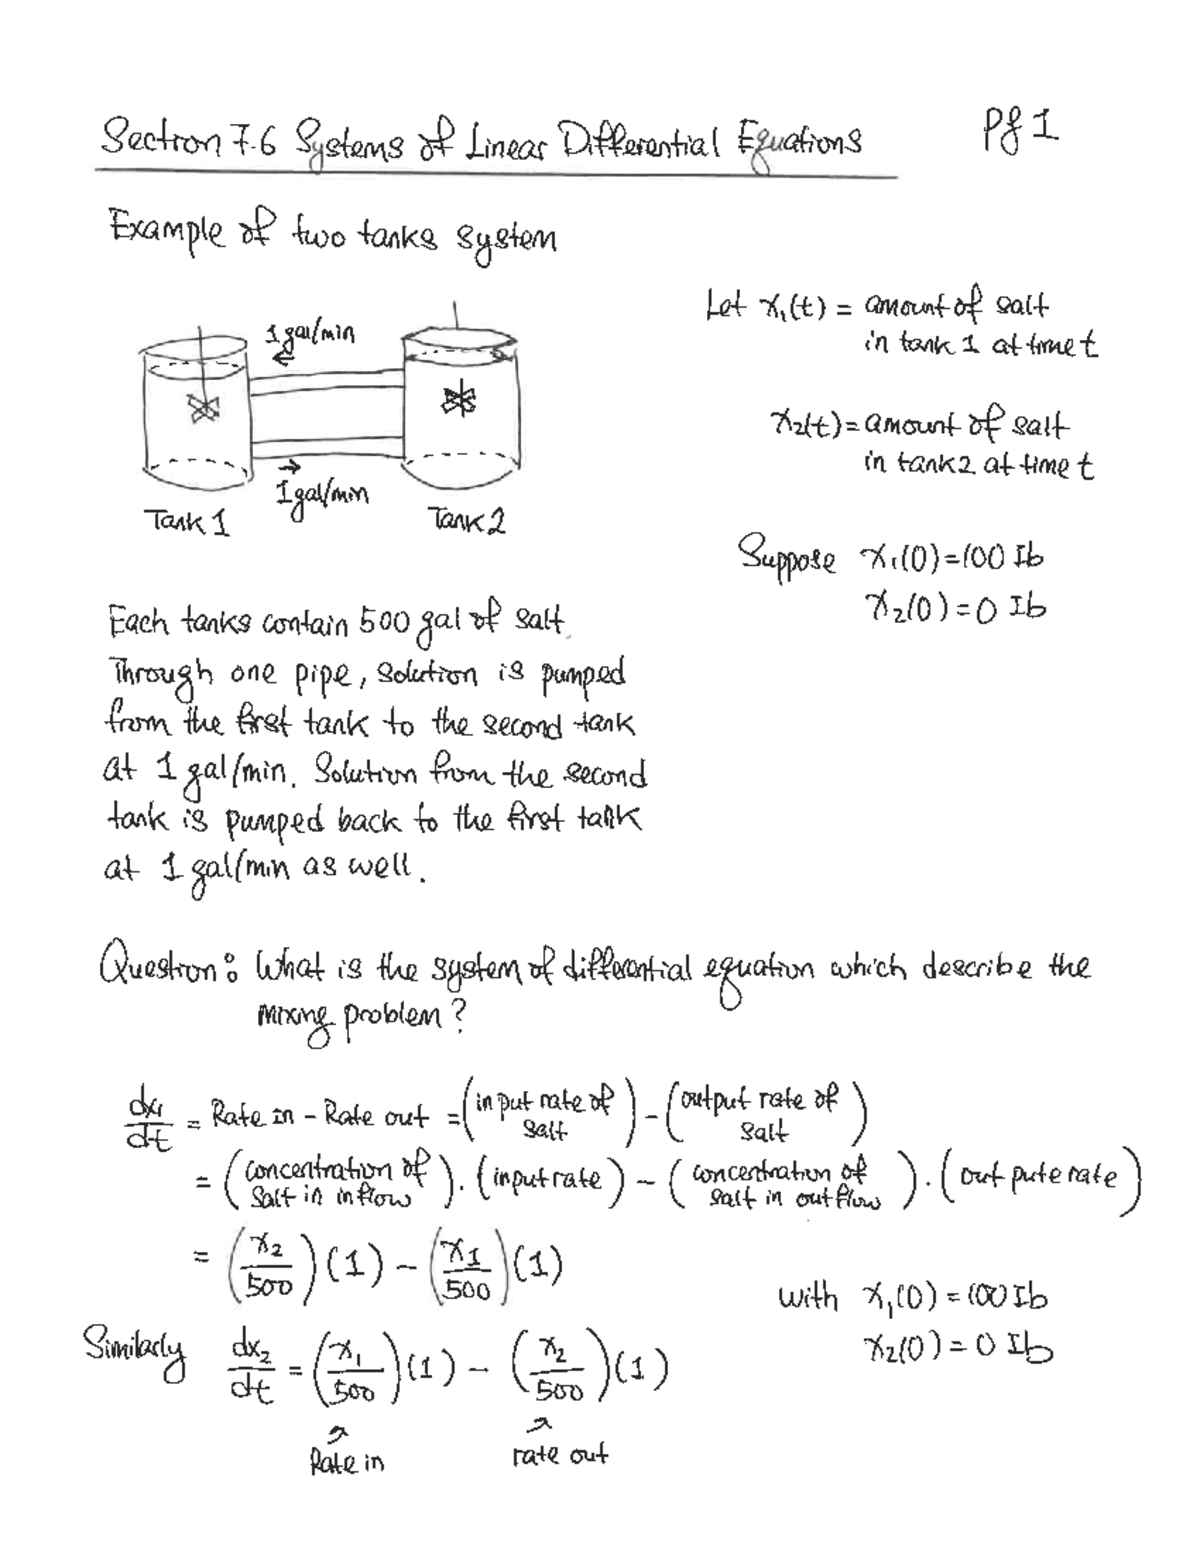 Section 7.6 Systems of Linear Differential Equations
Pg 1
Example of two tanks system
1 gal/min
1 gal/min
Tank 1
Tank 2
Let x₁(t) = amount of salt
in tank 1 at time t
x₂(t) = amount of salt
in tank 2 at time t
Suppose x₁(0) = 100 Ib
x₂(0) = 0 Ib
Each tanks contain 500 gal of salt.
Through one pipe, solution is pumped
from the first tank to the second tank
at 1 gal/min. Solution from the second
tank is pumped back to the first tank
at 1 gal/min as well.
Question: What is the system of differential equation which describe the
mixing problem?
dx₁/dt = Rate in - Rate out = (input rate of salt) - (output rate of salt)
= (concentration of salt in inflow) · (input rate) - (concentration of salt in outflow) · (out pute rate)
= (x₂/500)(1) - (x₁/500)(1)
with x₁(0) = 100 Ib
x₂(0) = 0 Ib
Similarly dx₂/dt = (x₁/500)(1) - (x₂/500)(1)
Rate in
rate out